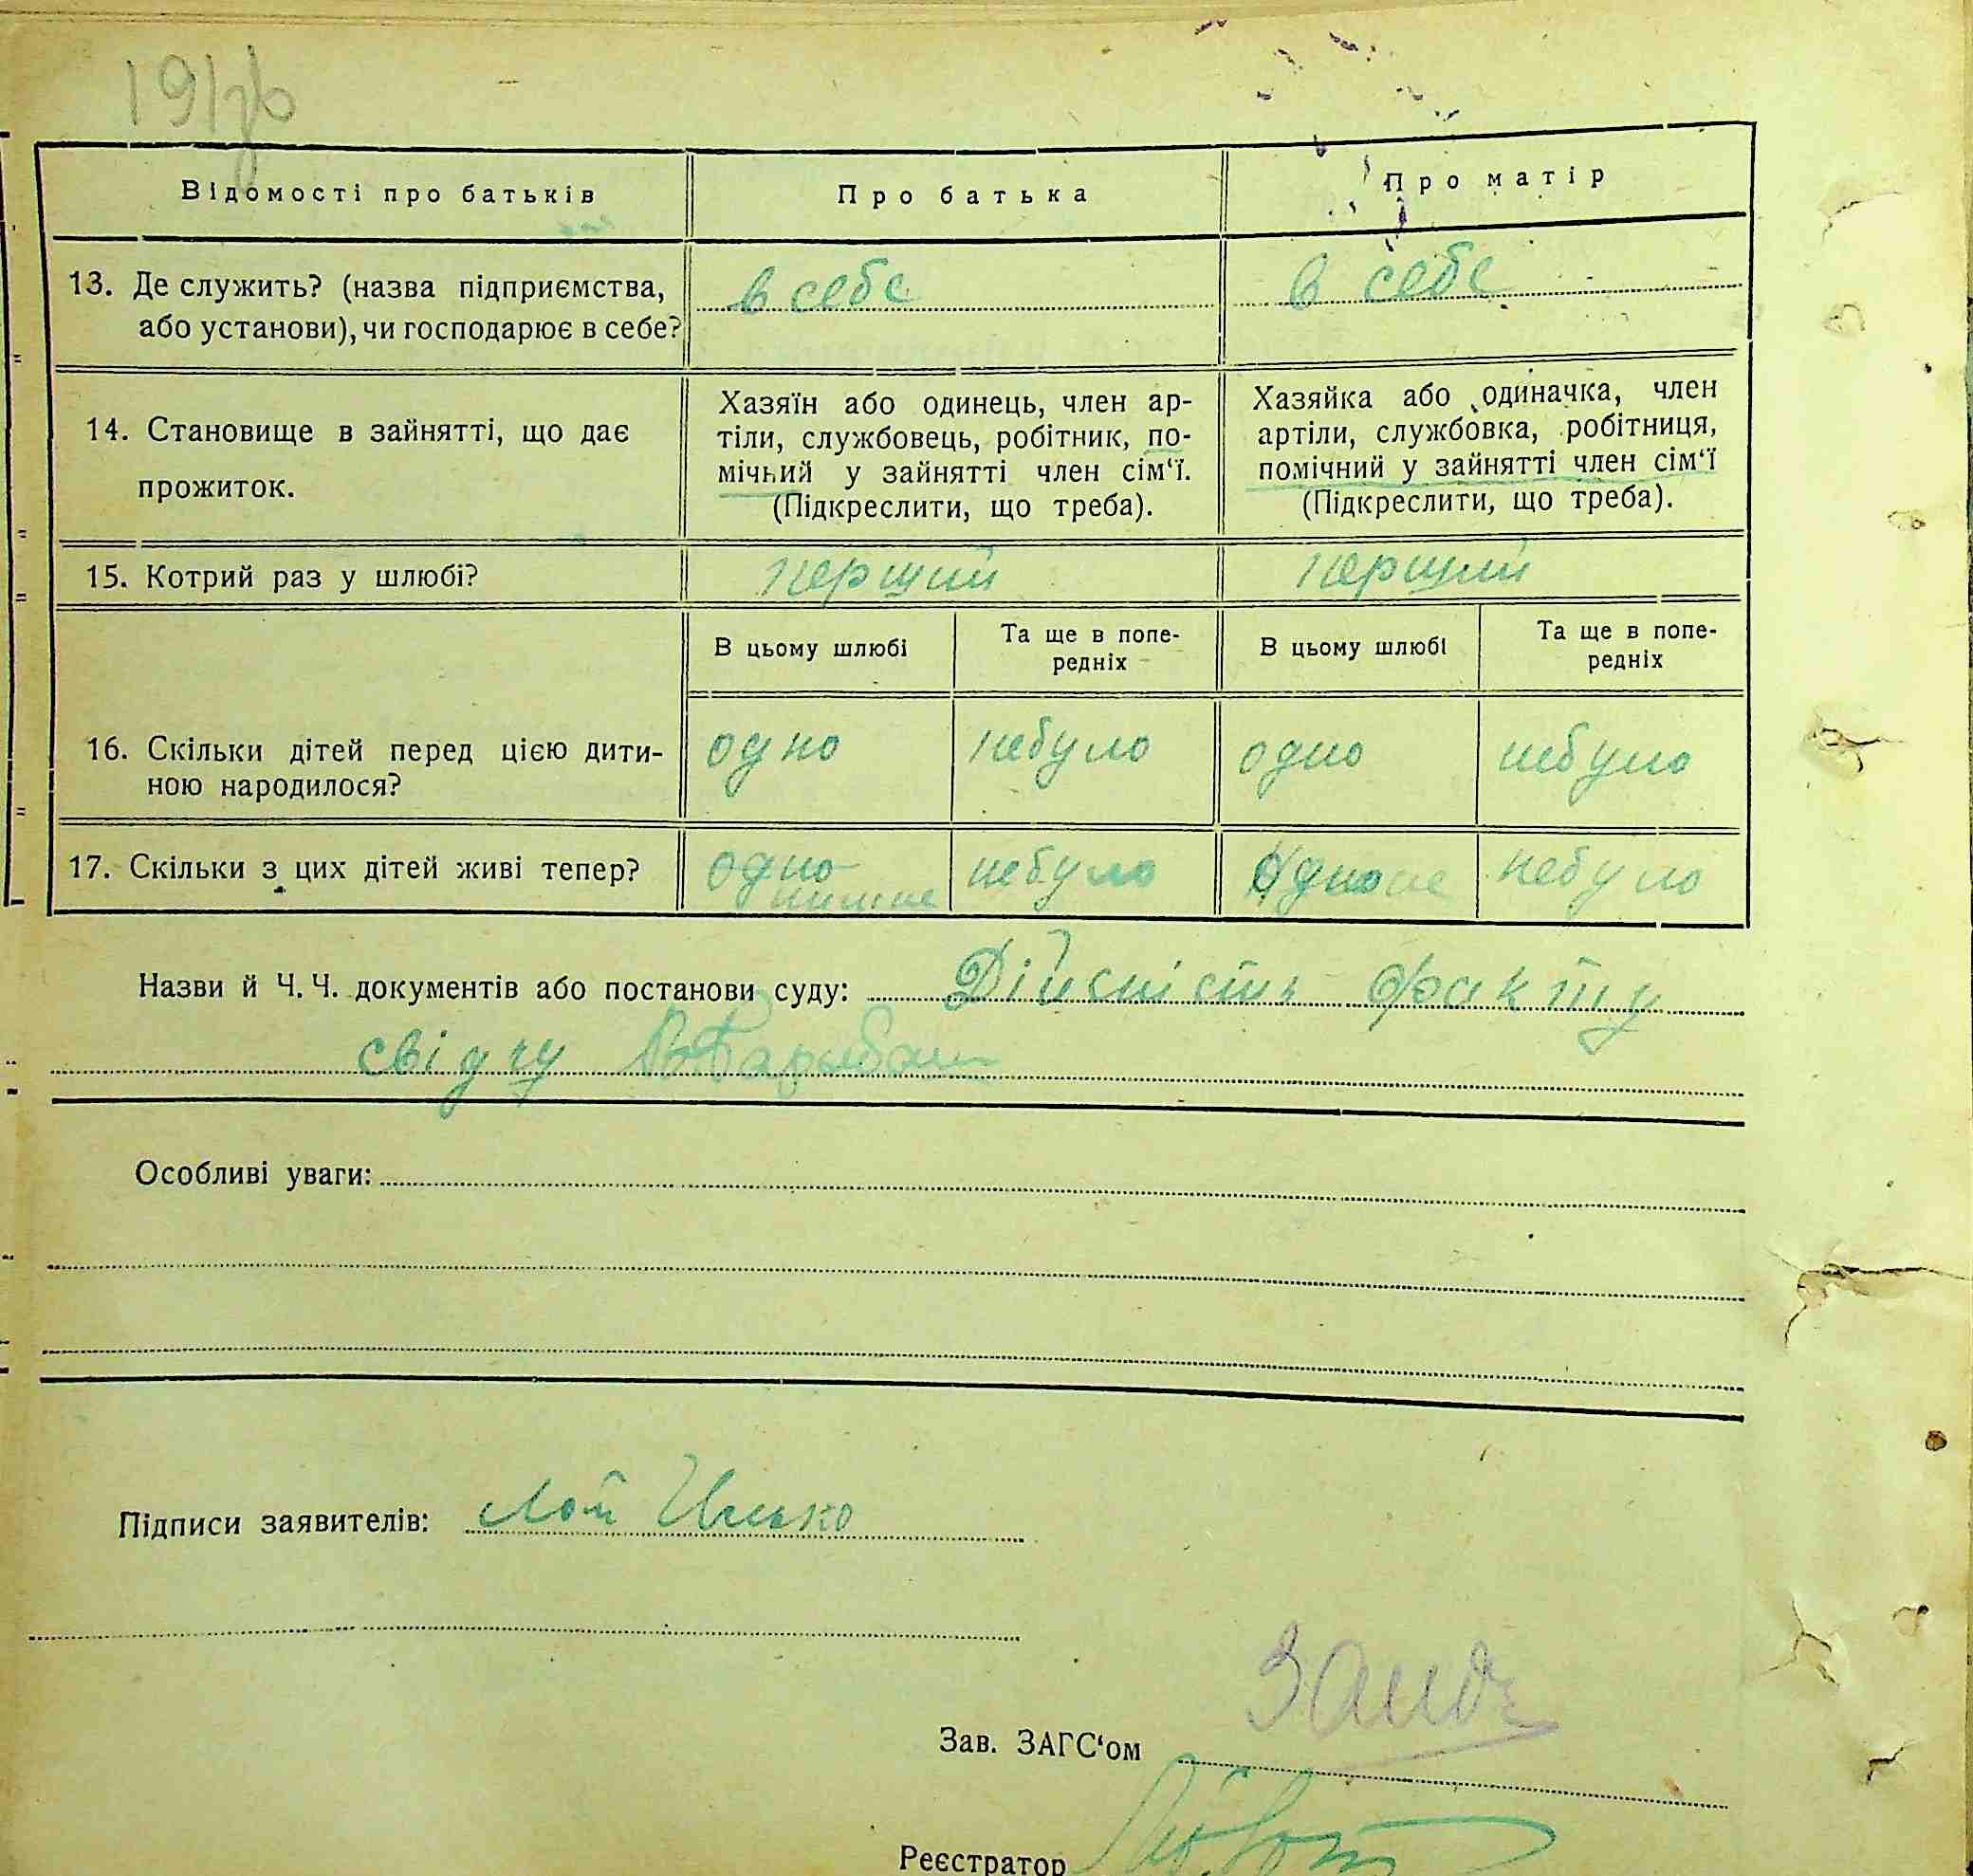 Відомості про батьків
Про батька
Про матір
13. Де служить? (назва підприємства, або установи), чи господарює в себе?
в себе
в себе
14. Становище в зайнятті, що дає прожиток.
Хазяїн або одинець, член ар-
тіли, службовець, робітник, по-
мічний у зайнятті член сім‘ї.
(Підкреслити, що треба).
Хазяйка або одиначка, член
артіли, службовка, робітниця,
помічний у зайнятті член сім‘ї
(Підкреслити, що треба).
15. Котрий раз у шлюбі?
перший
перший
В цьому шлюбі
Та ще в попе-
редніх
В цьому шлюбі
Та ще в попе-
редніх
16. Скільки дітей перед цією дити-
ною народилося?
одно
небуло
одно
небуло
17. Скільки з цих дітей живі тепер?
одно
небуло
одно
небуло
Назви й Ч. Ч. документів або постанови суду: Дійсність факту
свідчу
Особливі уваги:
Підписи заявителів:
Зав. ЗАГС‘ом
Реєстратор